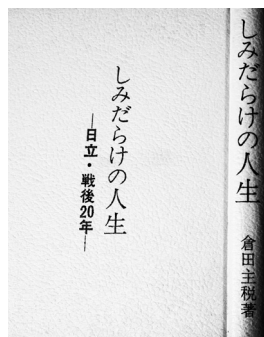 しみだらけの人生
―日立・戦後20年―
しみだらけの人生
倉田主税著